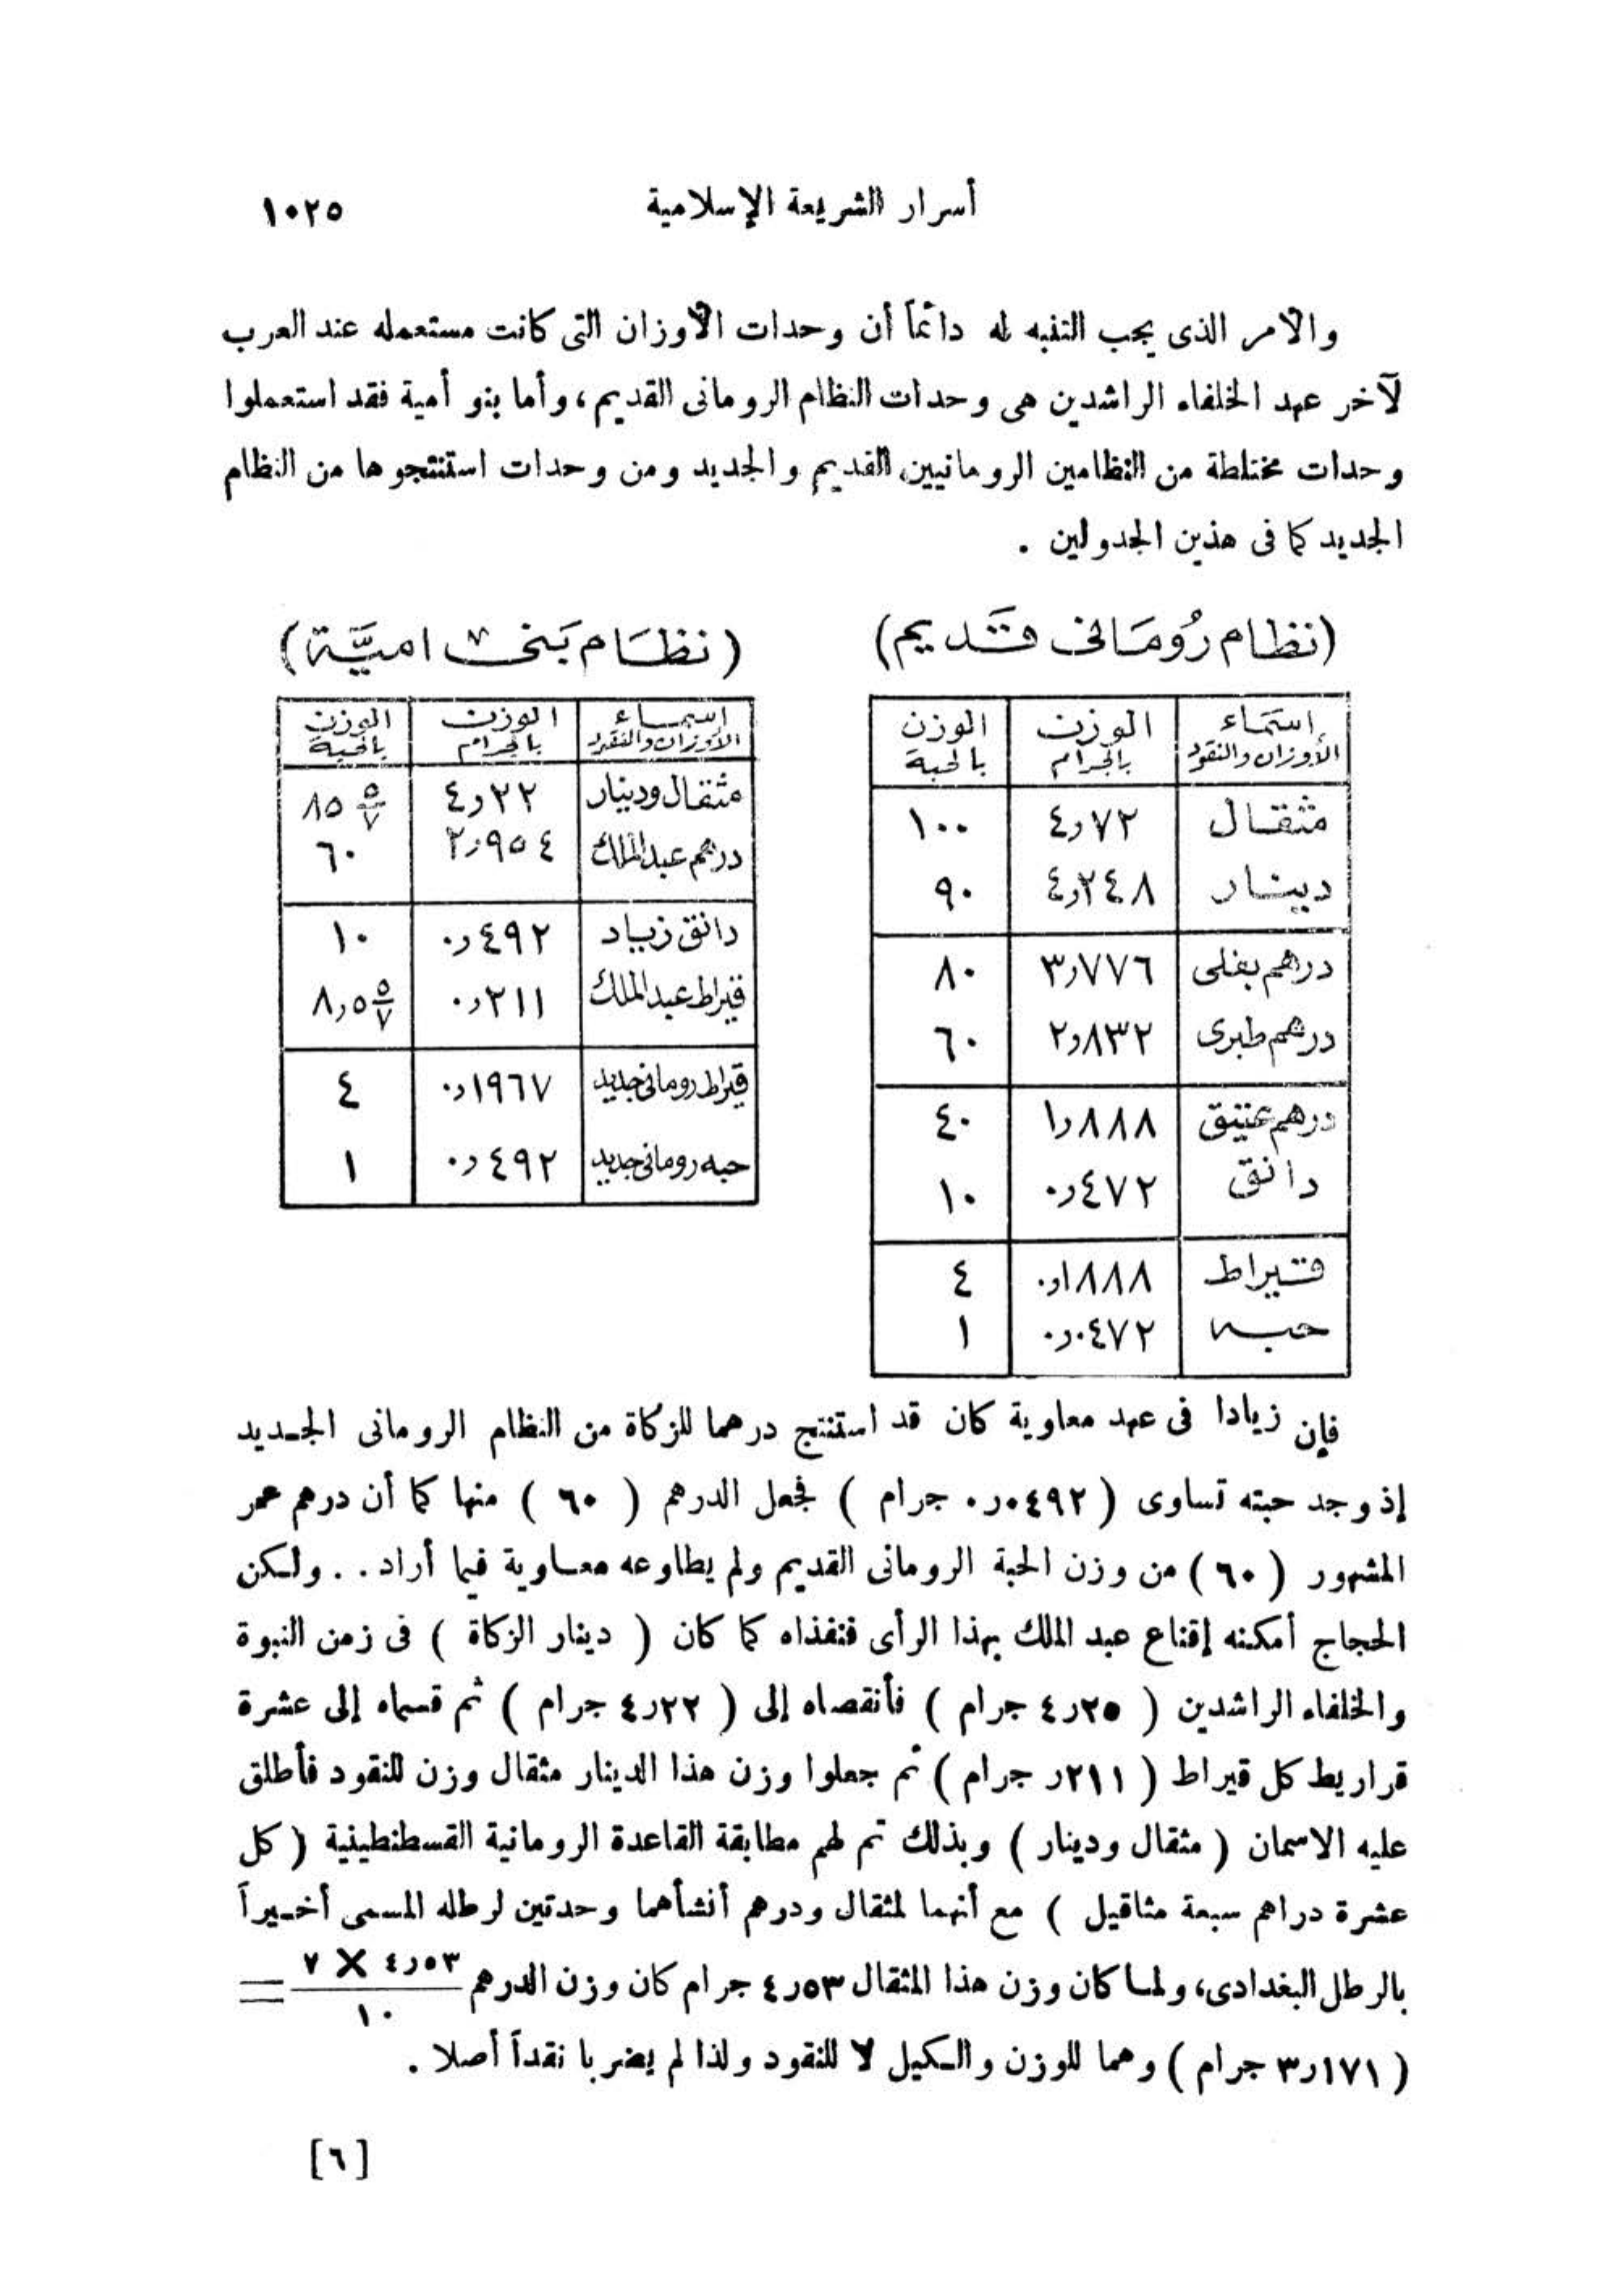 أسرار الشريعة الإسلامية ١٠٢٥
والأمر الذى يجب التنبه له دائماً أن وحدات الأوزان التى كانت مستعمله عند العرب
لآخر عهد الخلفاء الراشدين هى وحدات النظام الرومانى القديم، وأما بنو أمية فقد استعملوا
وحدات مختلطة من النظامين الرومانيين القديم والجديد ومن وحدات استنتجوها من النظام
الجديد كما فى هذين الجدولين .
(نظام رُومَانى قديم)
إسمَاء الأوزان والنقود | الوزن بالجرام | الوزن بالحبة
مثقال | ٤٫٧٢ | ١٠٠
دينار | ٤٫٢٤٨ | ٩٠
درهم بغلى | ٣٫٧٧٦ | ٨٠
درهم طبرى | ٢٫٨٣٢ | ٦٠
درهم عتيق | ١٫٨٨٨ | ٤٠
دانق | ٠٫٤٧٢ | ١٠
قيراط | ٠٫١٨٨٨ | ٤
حبه | ٠٫٠٤٧٢ | ١
(نظَام بَنى اميَّة)
إسماء الأوزان والنقود | الوزن بالجرام | الوزن بالحبة
مثقال ودينار | ٤٫٢٢ | ٨٥ ٥/٧
درهم عبد الملك | ٢٫٩٥٤ | ٦٠
دانق زياد | ٠٫٤٩٢ | ١٠
قيراط عبد الملك | ٠٫٢١١ | ٨٫٥ ٥/٧
قيراط رومانى جديد | ٠٫١٩٦٧ | ٤
حبه رومانى جديد | ٠٫٤٩٢ | ١
فإن زيادا فى عهد معاوية كان قد استنتج درهما للزكاة من النظام الرومانى الجديد
إذ وجد حبته تساوى ( ٠٫٠٤٩٢ جرام ) فجعل الدرهم ( ٦٠ ) منها كما أن درهم عمر
المشهور ( ٦٠ ) من وزن الحبة الرومانى القديم ولم يطاوعه معاوية فيما أراد . . ولكن
الحجاج أمكنه إقناع عبد الملك بهذا الرأى فنفذاه كما كان ( دينار الزكاة ) فى زمن النبوة
والخلفاء الراشدين ( ٤٫٢٥ جرام ) فأنقصاه إلى ( ٤٫٢٢ جرام ) ثم قسماه إلى عشرة
قراريط كل قيراط ( ٢١١ر جرام ) ثم جعلوا وزن هذا الدينار مثقال وزن للنقود فأطلق
عليه الاسمان ( مثقال ودينار ) وبذلك تم لهم مطابقة القاعدة الرومانية القسطنطينية ( كل
عشرة دراهم سبعة مثاقيل ) مع أنهما لمثقال ودرهم أنشأهما وحدتين لرطله المسمى أخيراً
بالرطل البغدادى، ولما كان وزن هذا المثقال ٤٫٥٣ جرام كان وزن الدرهم ٤٫٥٣ × ٧ / ١٠ =
( ٣٫١٧١ جرام ) وهما للوزن والكيل لا للنقود ولذا لم يضربا نقداً أصلا .
[٦]